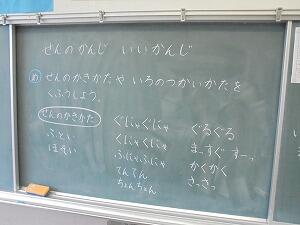 せんのかんじ いいかんじ
め せんのかきかたや いろのつかいかたを
くふうしよう。
せんのかきかた
ふとい
ほそい
ぐにゃぐにゃ
くにゃくにゃ
ふにゃふにゃ
てんてん
ちょんちょん
ぐるぐる
まっすぐ すーっ
かくかく
さっさっ